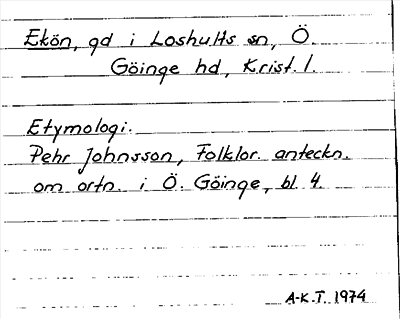 Ekön, gd i Loshults sn, Ö.
Göinge hd, Krist. l.
Etymologi.
Pehr Johnsson, Folklor. anteckn.
om ortn. i Ö. Göinge, bl. 4.
A-K.T. 1974